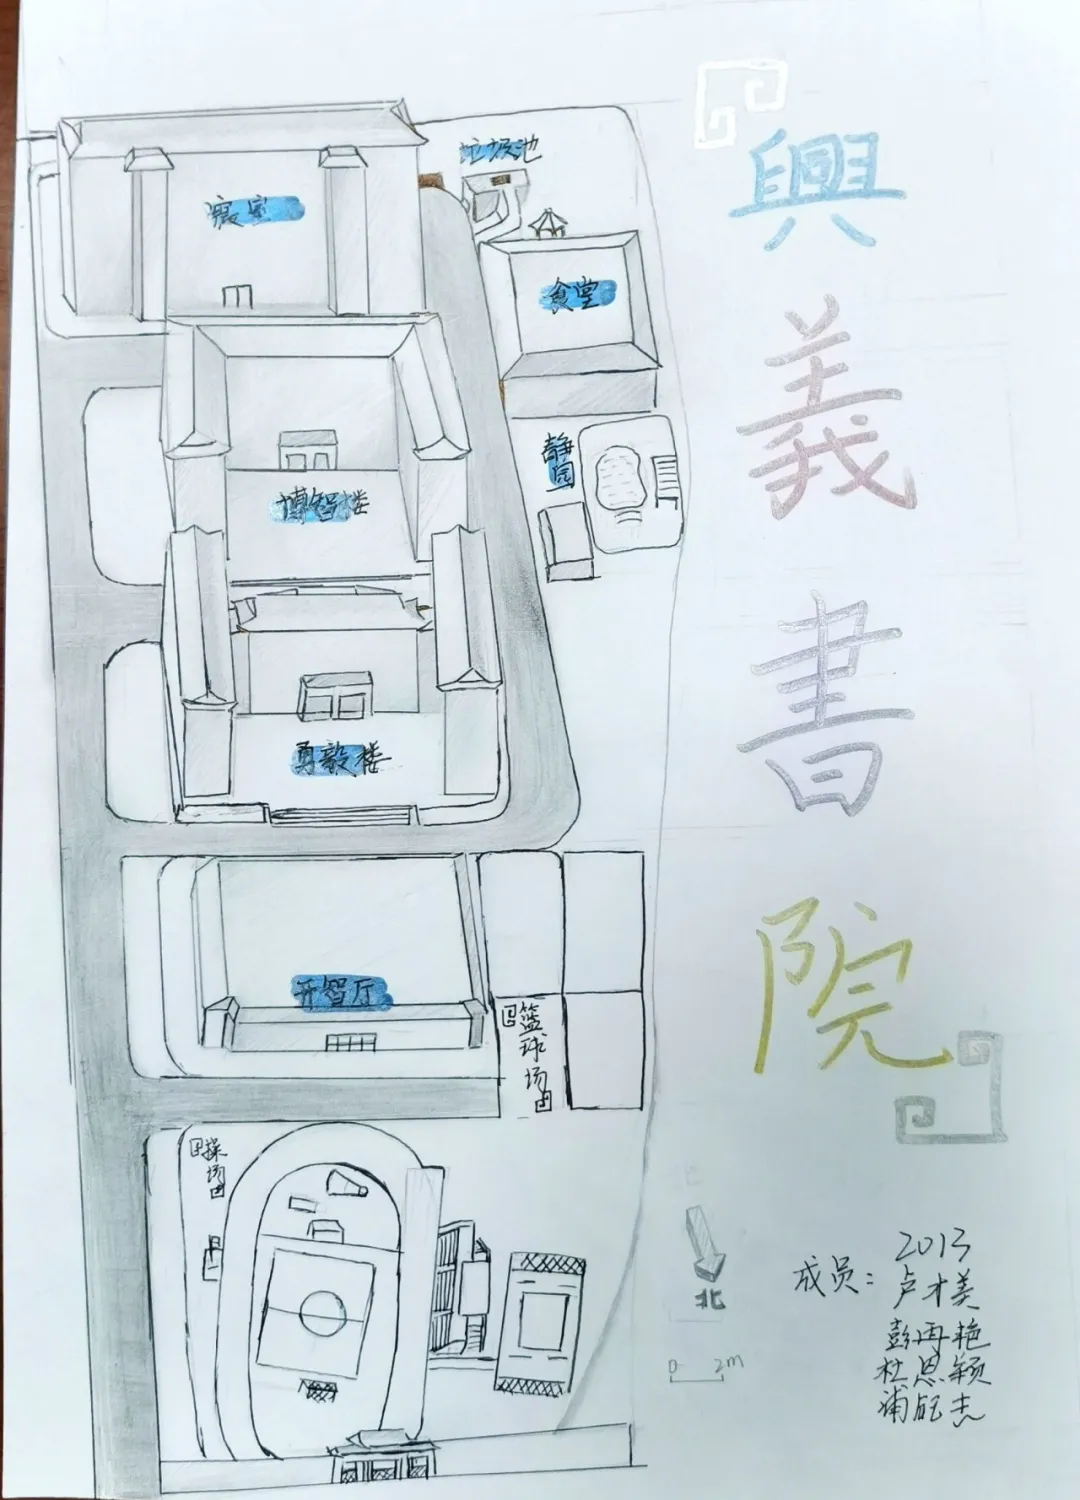 興義書院
垃圾池
寝室
食堂
静园
博智楼
勇毅楼
开智厅
篮球场
操场
北
0 2m
成员：
2013
卢才美
彭再艳
杜恩颖